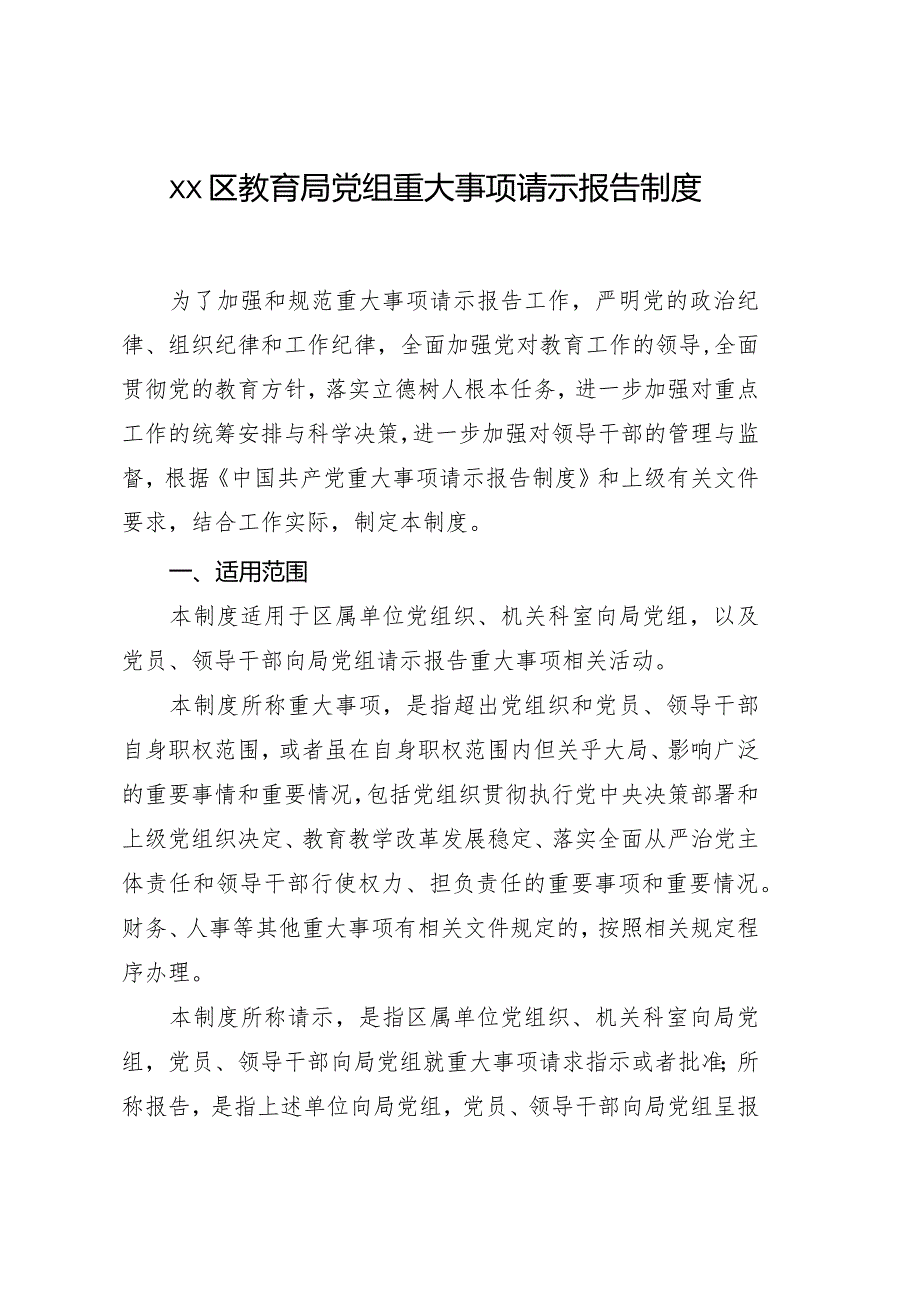 xx区教育局党组重大事项请示报告制度
为了加强和规范重大事项请示报告工作，严明党的政治纪
律、组织纪律和工作纪律，全面加强党对教育工作的领导,全面
贯彻党的教育方针，落实立德树人根本任务，进一步加强对重点
工作的统筹安排与科学决策,进一步加强对领导干部的管理与监
督，根据《中国共产党重大事项请示报告制度》和上级有关文件
要求，结合工作实际，制定本制度。
一、适用范围
本制度适用于区属单位党组织、机关科室向局党组，以及
党员、领导干部向局党组请示报告重大事项相关活动。
本制度所称重大事项，是指超出党组织和党员、领导干部
自身职权范围，或者虽在自身职权范围内但关乎大局、影响广泛
的重要事情和重要情况，包括党组织贯彻执行党中央决策部署和
上级党组织决定、教育教学改革发展稳定、落实全面从严治党主
体责任和领导干部行使权力、担负责任的重要事项和重要情况。
财务、人事等其他重大事项有相关文件规定的，按照相关规定程
序办理。
本制度所称请示，是指区属单位党组织、机关科室向局党
组，党员、领导干部向局党组就重大事项请求指示或者批准；所
称报告，是指上述单位向局党组，党员、领导干部向局党组呈报